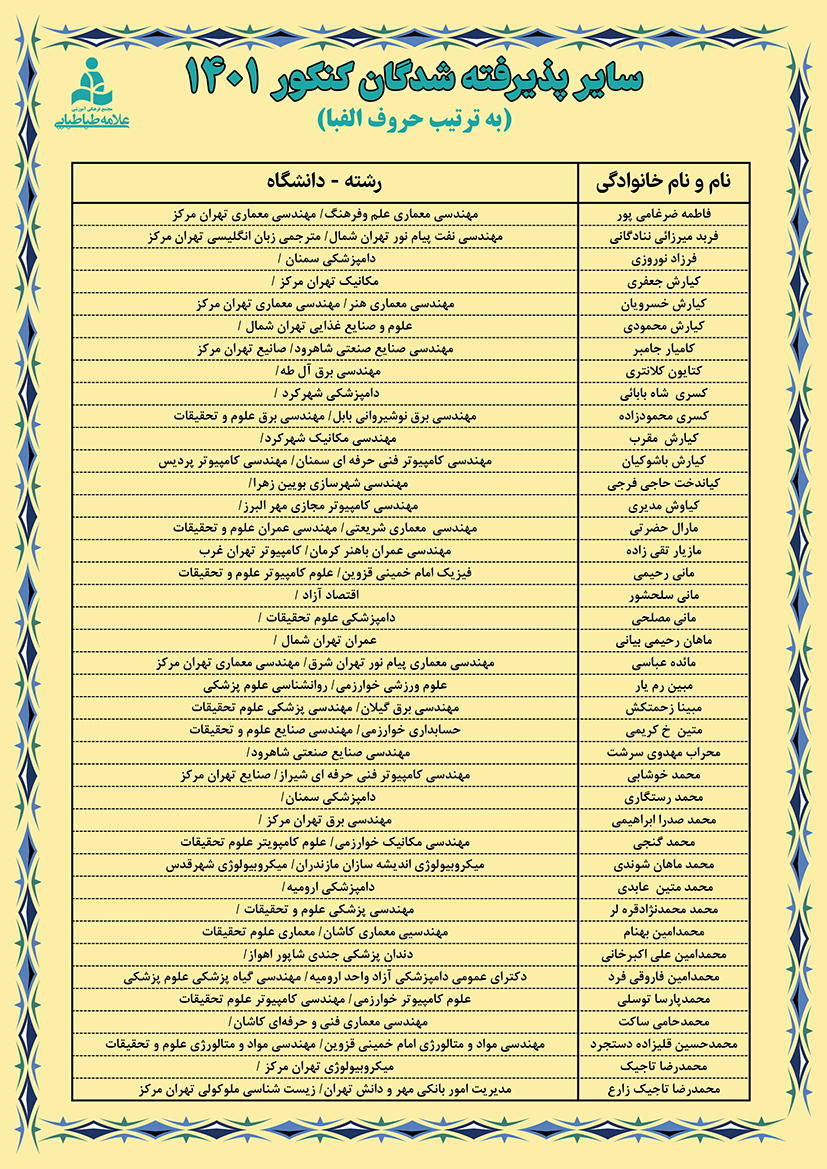 سایر پذیرفته شدگان کنکور ۱۴۰۱
(به ترتیب حروف الفبا)
مجتمع فرهنگی آموزشی
علامه طباطبایی
نام و نام خانوادگی رشته - دانشگاه
فاطمه ضرغامی پور مهندسی معماری علم وفرهنگ/ مهندسی معماری تهران مرکز
فربد میرزائی ننادگانی مهندسی نفت پیام نور تهران شمال/ مترجمی زبان انگلیسی تهران مرکز
فرزاد نوروزی دامپزشکی سمنان /
کیارش جعفری مکانیک تهران مرکز /
کیارش خسرویان مهندسی معماری هنر/ مهندسی معماری تهران مرکز
کیارش محمودی علوم و صنایع غذایی تهران شمال /
کامیار جامبر مهندسی صنایع صنعتی شاهرود/ صانیع تهران مرکز
کتایون کلانتری مهندسی برق آل طه/
کسری شاه بابائی دامپزشکی شهرکرد /
کسری محمودزاده مهندسی برق نوشیروانی بابل/ مهندسی برق علوم و تحقیقات
کیارش مقرب مهندسی مکانیک شهرکرد/
کیارش باشوکیان مهندسی کامپیوتر فنی حرفه ای سمنان/ مهندسی کامپیوتر پردیس
کیاندخت حاجی فرجی مهندسی شهرسازی بویین زهرا/
کیاوش مدیری مهندسی کامپیوتر مجازی مهر البرز/
مارال حضرتی مهندسی معماری شریعتی/ مهندسی عمران علوم و تحقیقات
مازیار تقی زاده مهندسی عمران باهنر کرمان/ کامپیوتر تهران غرب
مانی رحیمی فیزیک امام خمینی قزوین/ علوم کامپیوتر علوم و تحقیقات
مانی سلحشور اقتصاد آزاد /
مانی مصلحی دامپزشکی علوم تحقیقات /
ماهان رحیمی بیانی عمران تهران شمال /
مائده عباسی مهندسی معماری پیام نور تهران شرق/ مهندسی معماری تهران مرکز
مبین رم یار علوم ورزشی خوارزمی/ روانشناسی علوم پزشکی
مبینا زحمتکش مهندسی برق گیلان/ مهندسی پزشکی علوم تحقیقات
متین خ کریمی حسابداری خوارزمی/ مهندسی صنایع علوم و تحقیقات
محراب مهدوی سرشت مهندسی صنایع صنعتی شاهرود/
محمد خوشابی مهندسی کامپیوتر فنی حرفه ای شیراز/ صنایع تهران مرکز
محمد رستگاری دامپزشکی سمنان/
محمد صدرا ابراهیمی مهندسی برق تهران مرکز /
محمد گنجی مهندسی مکانیک خوارزمی/ علوم کامپویتر علوم تحقیقات
محمد ماهان شوندی میکروبیولوژی اندیشه سازان مازندران/ میکروبیولوژی شهرقدس
محمد متین عابدی دامپزشکی ارومیه/
محمد محمدنژادقره لر مهندسی پزشکی علوم و تحقیقات /
محمدامین بهنام مهندسیی معماری کاشان/ معماری علوم تحقیقات
محمدامین علی اکبرخانی دندان پزشکی جندی شاپور اهواز/
محمدامین فاروقی فرد دکترای عمومی دامپزشکی آزاد واحد ارومیه/ مهندسی گیاه پزشکی علوم پزشکی
محمدپارسا توسلی علوم کامپیوتر خوارزمی/ مهندسی کامپیوتر علوم تحقیقات
محمدحامی ساکت مهندسی معماری فنی و حرفه‌ای کاشان/
محمدحسین قلیزاده دستجرد مهندسی مواد و متالورژی امام خمینی قزوین/ مهندسی مواد و متالورژی علوم و تحقیقات
محمدرضا تاجیک میکروبیولوژی تهران مرکز /
محمدرضا تاجیک زارع مدیریت امور بانکی مهر و دانش تهران/ زیست شناسی ملوکولی تهران مرکز